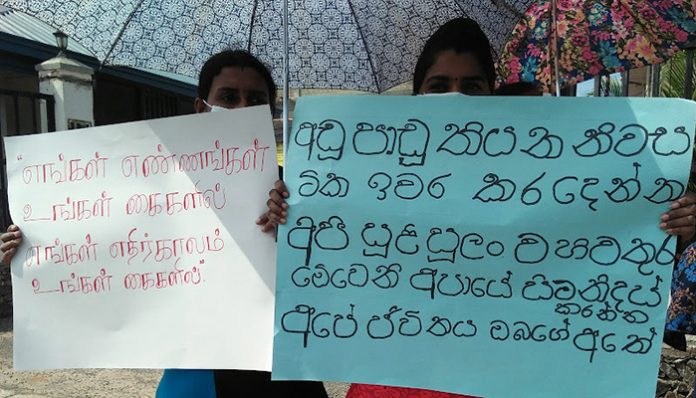 "எங்கள் எண்ணங்கள்
உங்கள் கைகளில்
எங்கள் எதிர்காலம்
உங்கள் கைகளில்"
අඩු පාඩු තියන නිවස
ටික ඉවර කරදෙන්න
අපි සුළි සුලං වහිවතුර
මෙවෙනි අපායේ සිමනිදාස්
කරන්න
අපේ ජීවිතය ඔබගේ අතේ